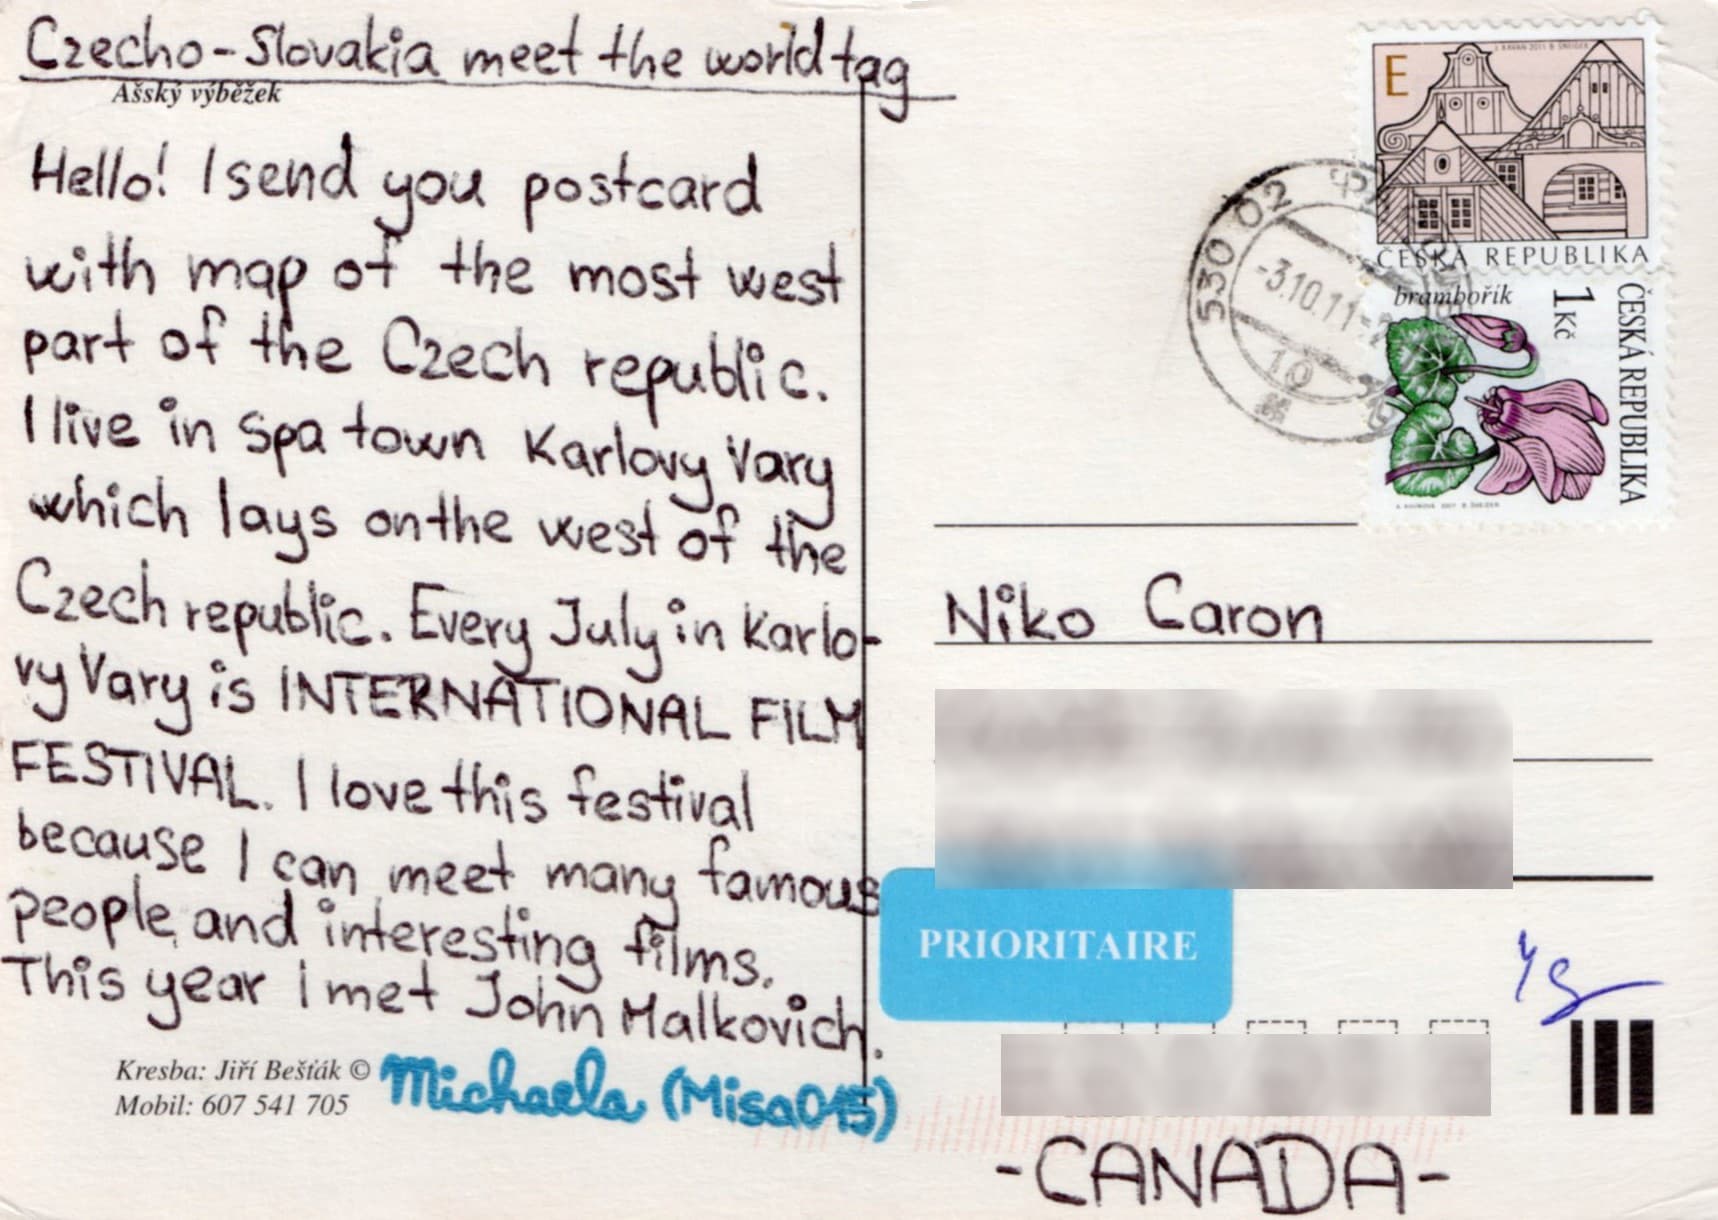 Czecho-Slovakia meet the world tag
Ašský výběžek
Hello! I send you postcard
with map of the most west
part of the Czech republic.
I live in spa town Karlovy Vary
which lays on the west of the
Czech republic. Every July in Karlo-
vy Vary is INTERNATIONAL FILM
FESTIVAL. I love this festival
because I can meet many famous
people, and interesting films.
This year I met John Malkovich.
Kresba: Jiří Bešťák ©
Mobil: 607 541 705
Michaela (Misa015)
E
ČESKÁ REPUBLIKA
brambořík
1 Kč
ČESKÁ REPUBLIKA
530 02
-3.10.11
10
Niko Caron
PRIORITAIRE
-CANADA-